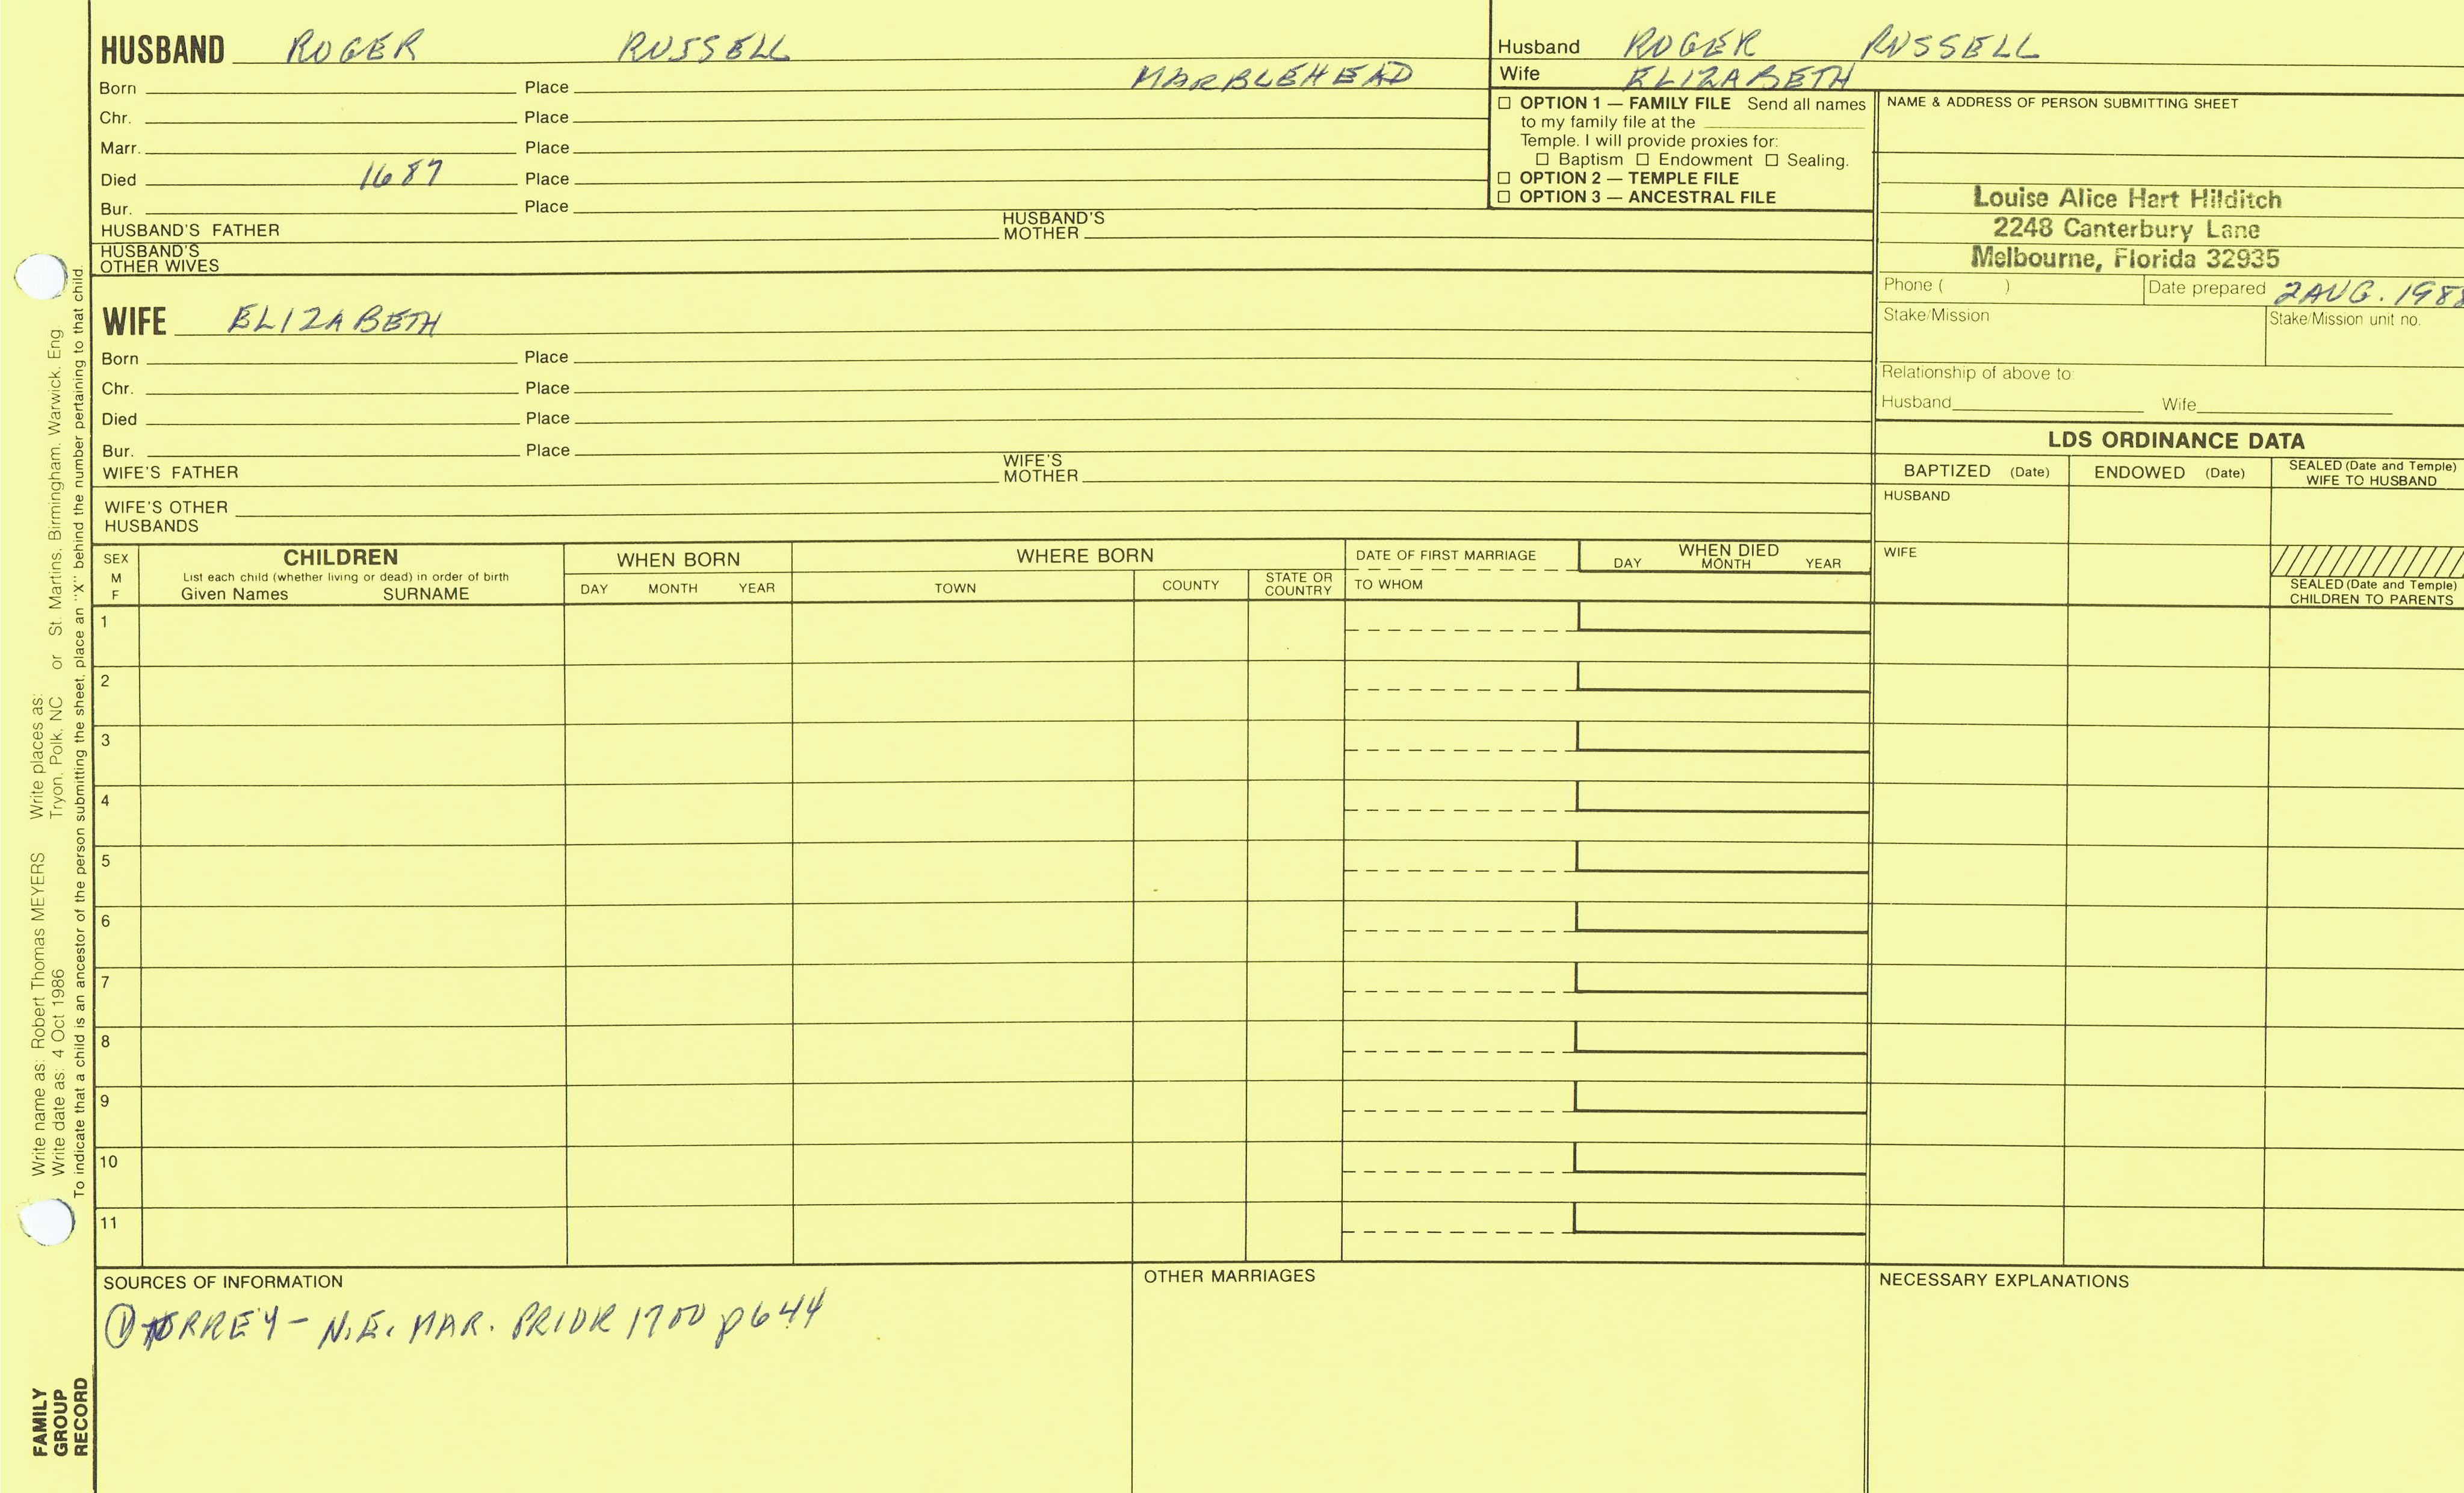 HUSBAND ROGER RUSSELL
Born Place MARBLEHEAD
Chr. Place
Marr. Place
Died 1687 Place
Bur. Place
HUSBAND'S FATHER HUSBAND'S MOTHER
HUSBAND'S OTHER WIVES
Husband ROGER RUSSELL
Wife ELIZABETH
☐ OPTION 1 — FAMILY FILE Send all names
to my family file at the
Temple. I will provide proxies for:
☐ Baptism ☐ Endowment ☐ Sealing.
☐ OPTION 2 — TEMPLE FILE
☐ OPTION 3 — ANCESTRAL FILE
NAME & ADDRESS OF PERSON SUBMITTING SHEET
Louise Alice Hart Hilditch
2248 Canterbury Lane
Melbourne, Florida 32935
Phone ( ) Date prepared 2 AUG. 1988
Stake/Mission Stake/Mission unit no.
Relationship of above to:
Husband Wife
WIFE ELIZABETH
Born Place
Chr. Place
Died Place
Bur. Place
WIFE'S FATHER WIFE'S MOTHER
WIFE'S OTHER
HUSBANDS
LDS ORDINANCE DATA
BAPTIZED (Date) ENDOWED (Date) SEALED (Date and Temple)
WIFE TO HUSBAND
HUSBAND
WIFE
SEALED (Date and Temple)
CHILDREN TO PARENTS
SEX
M
F
CHILDREN
List each child (whether living or dead) in order of birth
Given Names SURNAME
WHEN BORN
DAY MONTH YEAR
WHERE BORN
TOWN COUNTY STATE OR COUNTRY
DATE OF FIRST MARRIAGE
TO WHOM
WHEN DIED
DAY MONTH YEAR
1
2
3
4
5
6
7
8
9
10
11
SOURCES OF INFORMATION
① TORREY - N.E. MAR. PRIOR 1700 p644
OTHER MARRIAGES
NECESSARY EXPLANATIONS
Write name as: Robert Thomas MEYERS Write places as:
Write date as: 4 Oct 1986 Tryon, Polk, NC or St. Martins, Birmingham, Warwick, Eng
To indicate that a child is an ancestor of the person submitting the sheet, place an "X" behind the number pertaining to that child.
FAMILY
GROUP
RECORD